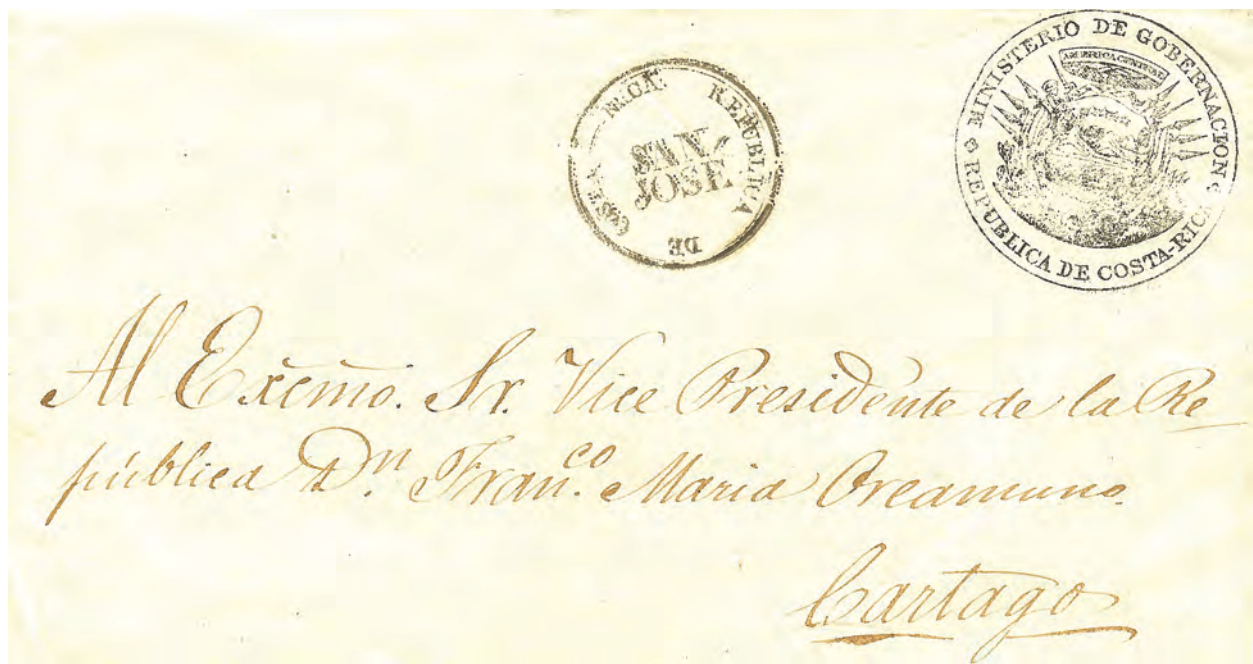 REPUBLICA DE COSTA RICA.
SAN
JOSE
MINISTERIO DE GOBERNACION
AMERICA CENTRAL
REPUBLICA DE COSTA-RICA
Al Excmo. Sr. Vice Presidente de la Re
pública Dn. Franco. Maria Oreamuno.
Cartago